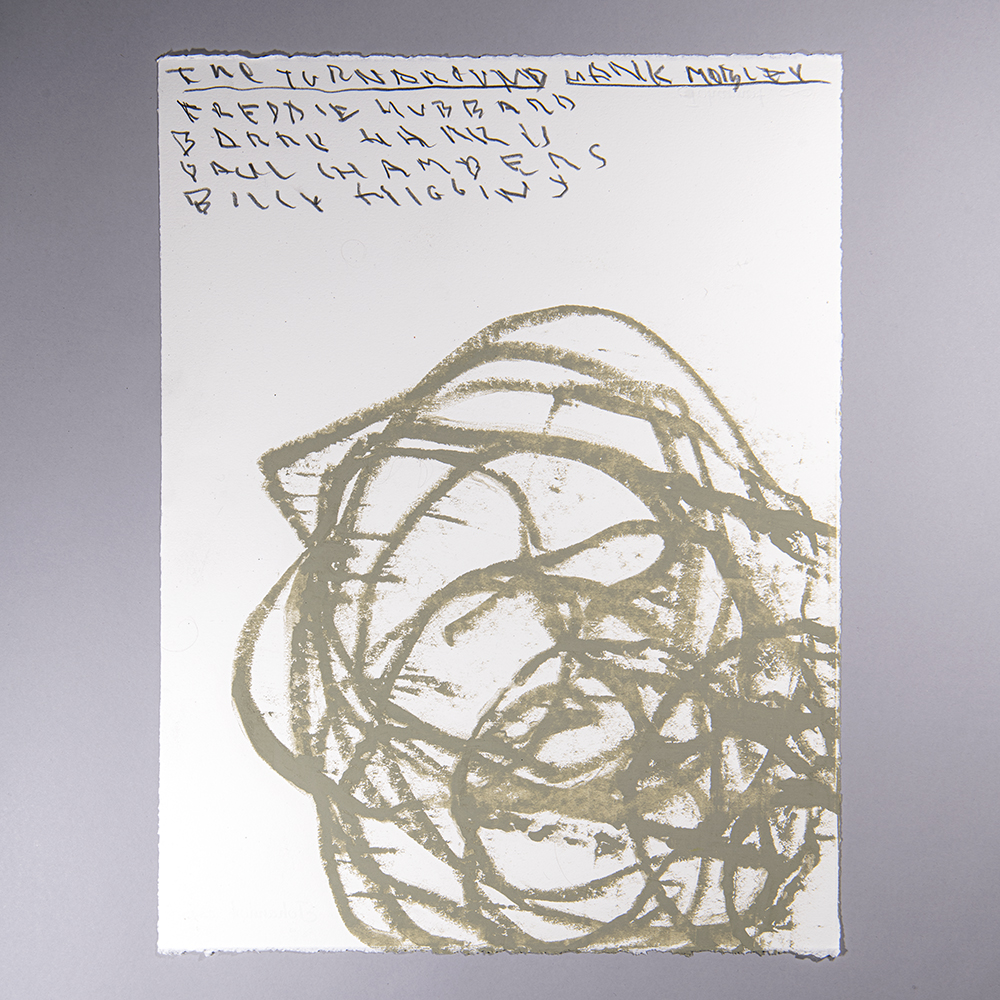 THE TURNAROUND HANK MOBLEY
FREDDIE HUBBARD
PAUL CHAMBERS
BILLY HIGGINS